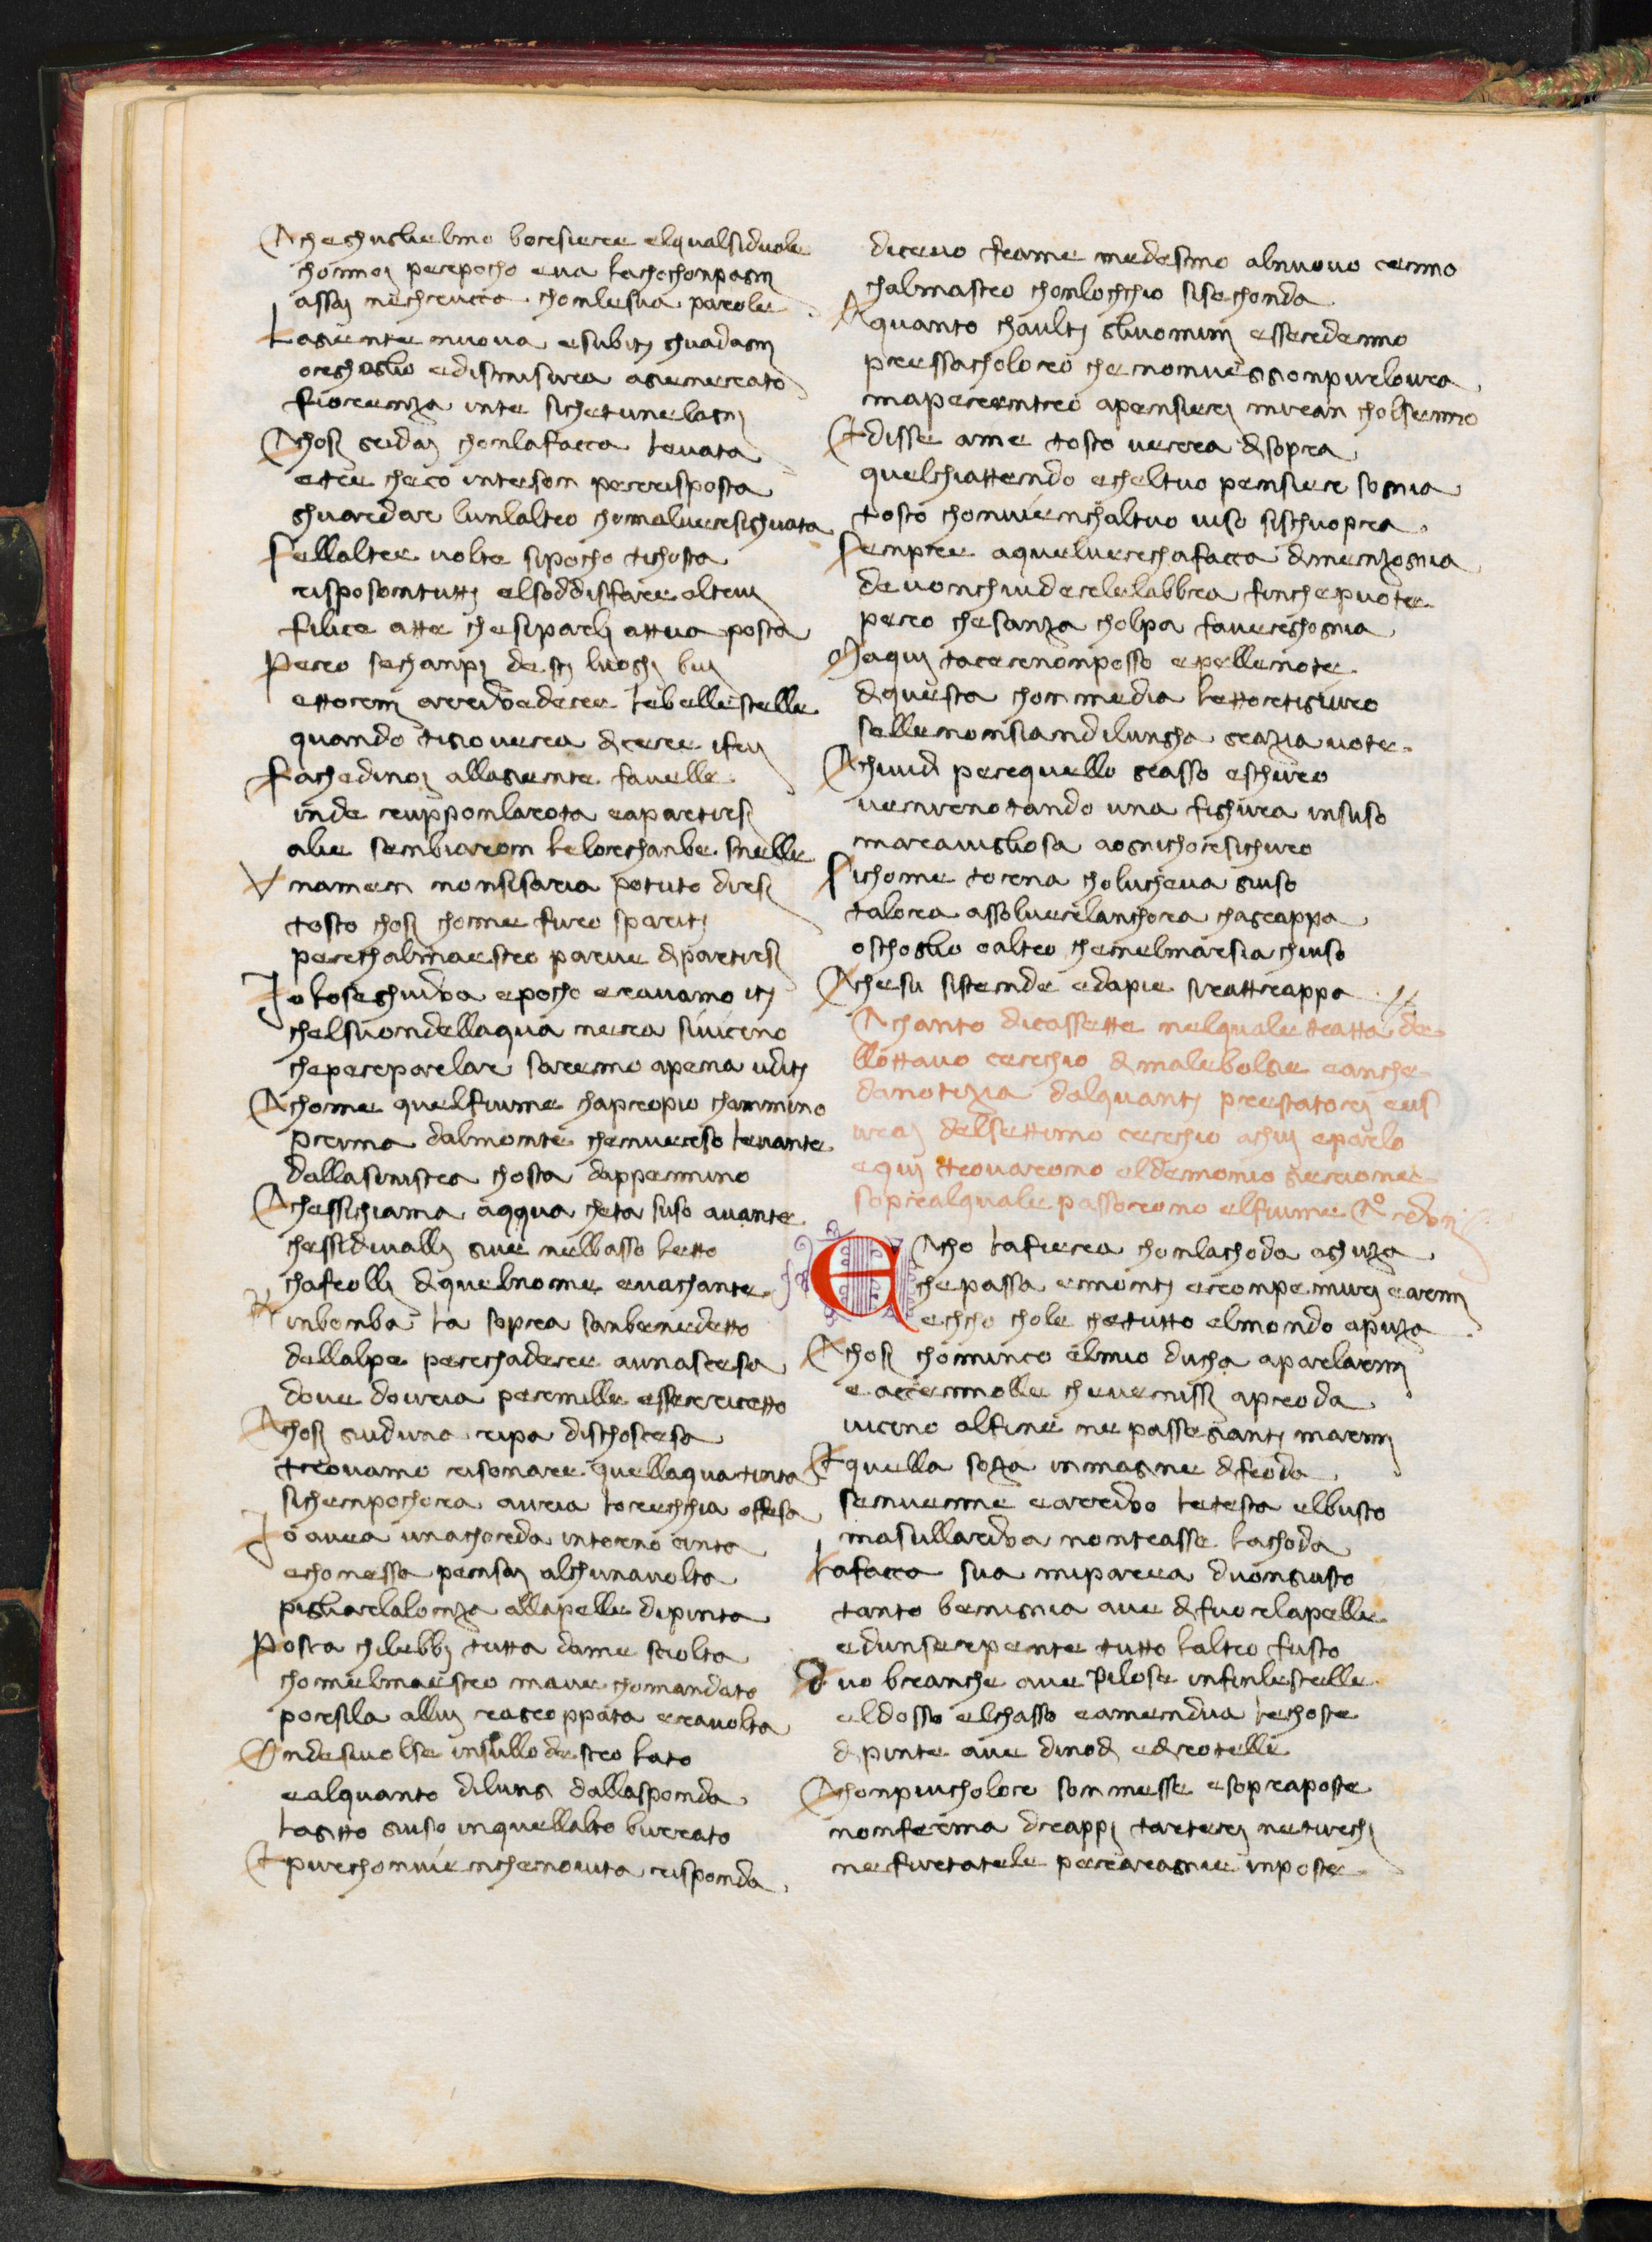 Che ghuglielmo borsiere elqualsiduole
chonnoj perpocho eva lachochonpagnj
assaj necruccia chonlesua parole
Lagiente nuova esubitj ghuadagnj
orghoglio edismisura agienerato
fiorenza inte sichetunelagnj
Chosj gridaj chonlafaccia levata
etre checo intesson perrisposta
ghuardar lunlaltro chomalversighuata
Sellaltre volte sipocho tichosta
risposontuttj elsoddisfare altruj
felice atte chesiparlj attua posta
Pero sechanpj destj luoghj buj
ettornj arrivedere lebellestelle
quando tigiovera dicere ifuj
Fachedinoj allagiente favelle
inde rupponlarota eapartirsj
alie senbiaron lelorghanbe snelle
Vnamen nonsisaria potuto dirsj
tosto chosj chome furo sparitj
perchalmaestro parve dipartirsj
Jo loseghuiva epocho eravamo itj
chelsuondellaqua nera sivicino
cheperparlar saremo apena uditj
Chome quelfiume chapropio chammino
prima dalmonte chenverso levante
dallasinistra chosta dappennino
Chessichiama aqqua cheta suso avante
chessidivallj giue nelbasso letto
chafrollj diquelnome evachante
Rinbonba la sopra sanbenedetto
dellalpe perchadere aunascesa
dove dovria permille esserricetto
Chosj giuduna ripa dischoscesa
trovamo risonare quellaquatinta
sichenpochora avria lorecchia offesa
Jo avea unachorda intorno cinta
echonessa pensaj alchunavolta
pigliarlalonza allapelle dipinta
Poscia chilebbj tutta dame sciolta
chomelmaestro mave chomandato
porsila alluj ragroppata eravolta
Ondesivolse insullo destro lato
ealquanto dilung dallasponda
lagitto giuso inquellalto burrato
Epurchonvienchenovita risponda
dicevo frame medesimo alnuovo cenno
chalmastro chonlochchio sisechonda
Aquanto chaultj gliuominj esserdenno
pressacholoro chenonveggonpurlovra
maperentro apensierj miran cholsenno
Edisse ame tosto verra disopra
quelchiattendo echeltuo pensier sognia
tosto chonvienchaltuo viso sischuopra
Sempre aquelverchafaccia dimenzognia
devonchiuderlelabbra finchepuote
pero chesanza cholpa faverghognia
Maquj tacernonposso epellenote
diquesta chonmedia lettortigiuro
sellenonsiendilungha grazia vote
Chividi perquello grasso eschuro
venirnotando una fighura insuso
maravigliosa aognichorsichuro
Sichome torna cholucheva giuso
talora assolverlanchora chagrappa
oschoglio oaltro chenelmarsia chiuso
Chesu sistende edapie sirattrappa
Chanto dicassette nelqualetratta de
llottavo cerchio dimalebolgie eanche
danotizia dalquantj prestatorj eus
uraj delsettimo cerchio achuj eparlo
equj trovarono eldemonio gierione
sopralquale passorono elfiume
Echo lafiera chonlachoda aghuza
chepassa emontj erompe murj earmj
echcho chole chetutto elmondo apuza
Chosj chomincio elmio ducha aparlarmj
e accennolle chevenissj aproda
vicino alfine nepassegiantj marmj
Equella soza inmagine difroda
senvenne earrivo latesta elbusto
masullariva nontrasse lachoda
Lafaccia sua mipareva duongiusto
tanto benignia ave difuorlapelle
edunserpente tutto laltro fusto
Duo branche ave pilose infinlescelle
eldosso elchasso eamendua lechoste
dipinte ave dinodi edirotelle
Chonpiucholor sonmesse esopraposte
nonferma drappj tarterj neturchj
nefurtatele peraragnie inposte